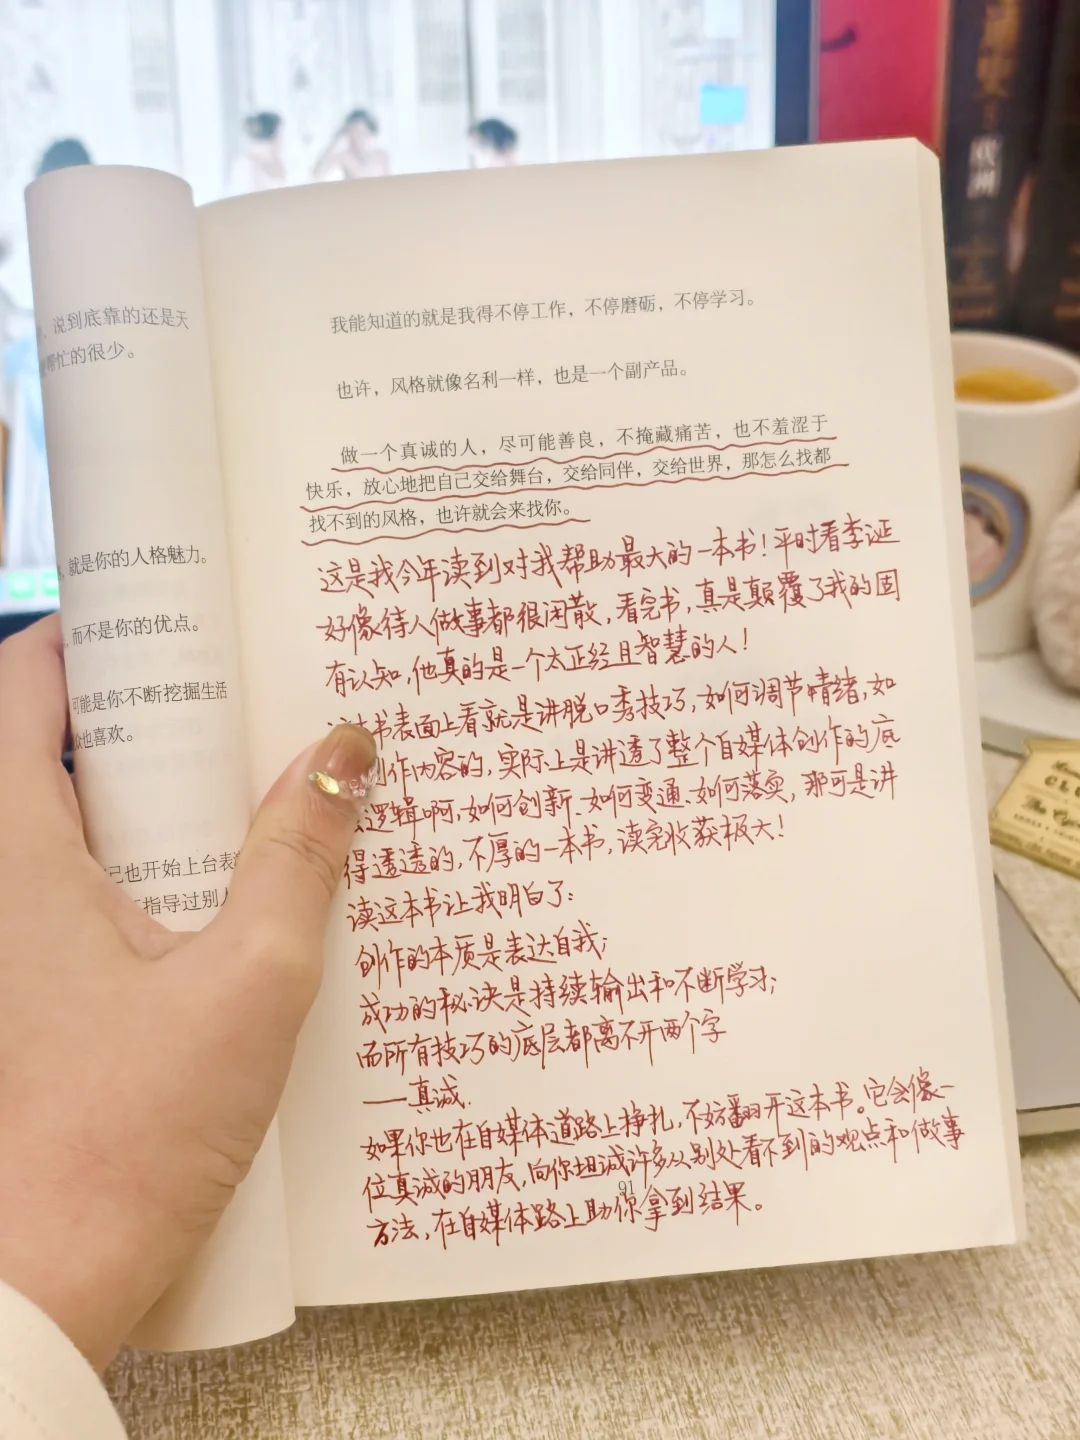 说到底靠的还是天
帮忙的很少。
就是你的人格魅力。
而不是你的优点。
可能是你不断挖掘生活
也喜欢。
己也开始上台表
指导过别人
我能知道的就是我得不停工作，不停磨砺，不停学习。
也许，风格就像名利一样，也是一个副产品。
做一个真诚的人，尽可能善良，不掩藏痛苦，也不羞涩于
快乐，放心地把自己交给舞台，交给同伴，交给世界，那怎么找都
找不到的风格，也许就会来找你。
这是我今年读到对我帮助最大的一本书！平时看李诞
好像待人做事都很闲散，看完书，真是颠覆了我的固
有认知，他真的是一个太正经且智慧的人！
这本书表面上看就是讲脱口秀技巧，如何调节情绪，如
创作内容的，实际上是讲透了整个自媒体创作的底
逻辑啊，如何创新、如何变通、如何落实，那可是讲
得透透的，不厚的一本书，读完收获极大！
读这本书让我明白了：
创作的本质是表达自我；
成功的秘诀是持续输出和不断学习；
而所有技巧的底层都离不开两个字
——真诚.
如果你也在自媒体道路上挣扎，不妨翻开这本书。它会像一
位真诚的朋友，向你坦诚许多从别处看不到的观点和做事
方法，在自媒体路上助你拿到结果。
91
欧洲